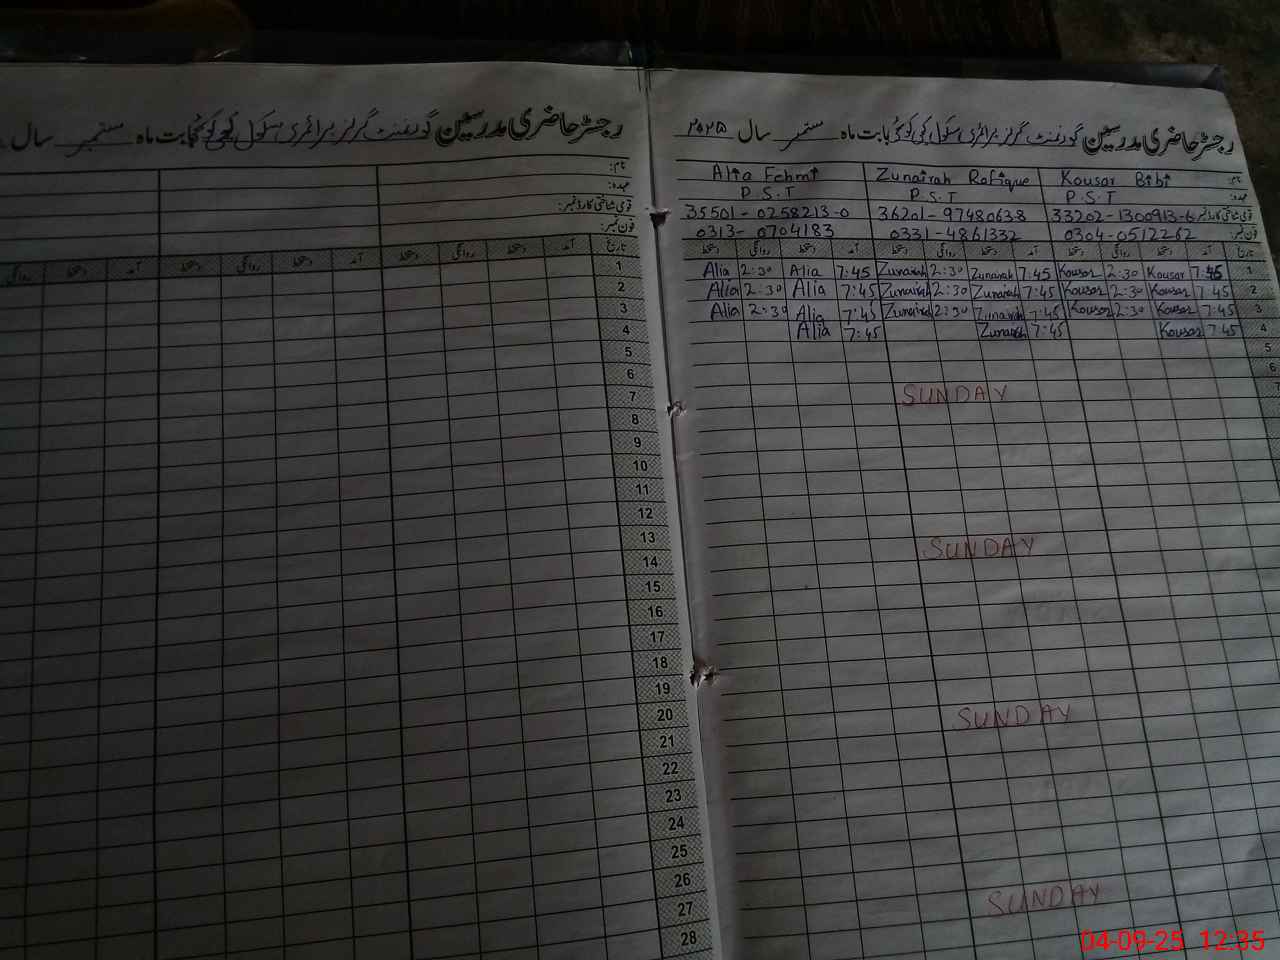 رجسٹر حاضری مدرسین گورنمنٹ گرلز پرائمری سکول بابت ماہ ستمبر سال ۲۰۲۵
نام: Kousar Bibi Zunairah Rafique Alia Fehmi
عہدہ: P.S.T P.S.T P.S.T
قومی شناختی کارڈ نمبر: 33202-1300913-6 36201-9748063-8 35501-0258213-0
فون نمبر: 0304-0512262 0331-4861332 0313-0704183
تاریخ آمد دستخط روانگی دستخط آمد دستخط روانگی دستخط آمد دستخط روانگی دستخط
1 7:45 Kousar 2:30 Kousar 7:45 Zunairah 2:30 Zunairah 7:45 Alia 2:30 Alia
2 7:45 Kousar 2:30 Kousar 7:45 Zunairah 2:30 Zunairah 7:45 Alia 2:30 Alia
3 7:45 Kousar 2:30 Kousar 7:45 Zunairah 2:30 Zunairah 7:45 Alia 2:30 Alia
4 7:45 Kousar 7:45 Zunairah 7:45 Alia
5
6
7 SUNDAY
SUNDAY
SUNDAY
SUNDAY
رجسٹر حاضری مدرسین گورنمنٹ گرلز پرائمری سکول بابت ماہ ستمبر سال
نام:
عہدہ:
قومی شناختی کارڈ نمبر:
فون نمبر:
تاریخ آمد دستخط روانگی دستخط آمد دستخط روانگی دستخط آمد دستخط روانگی
1
2
3
4
5
6
7
8
9
10
11
12
13
14
15
16
17
18
19
20
21
22
23
24
25
26
27
28
04-09-25 12:35